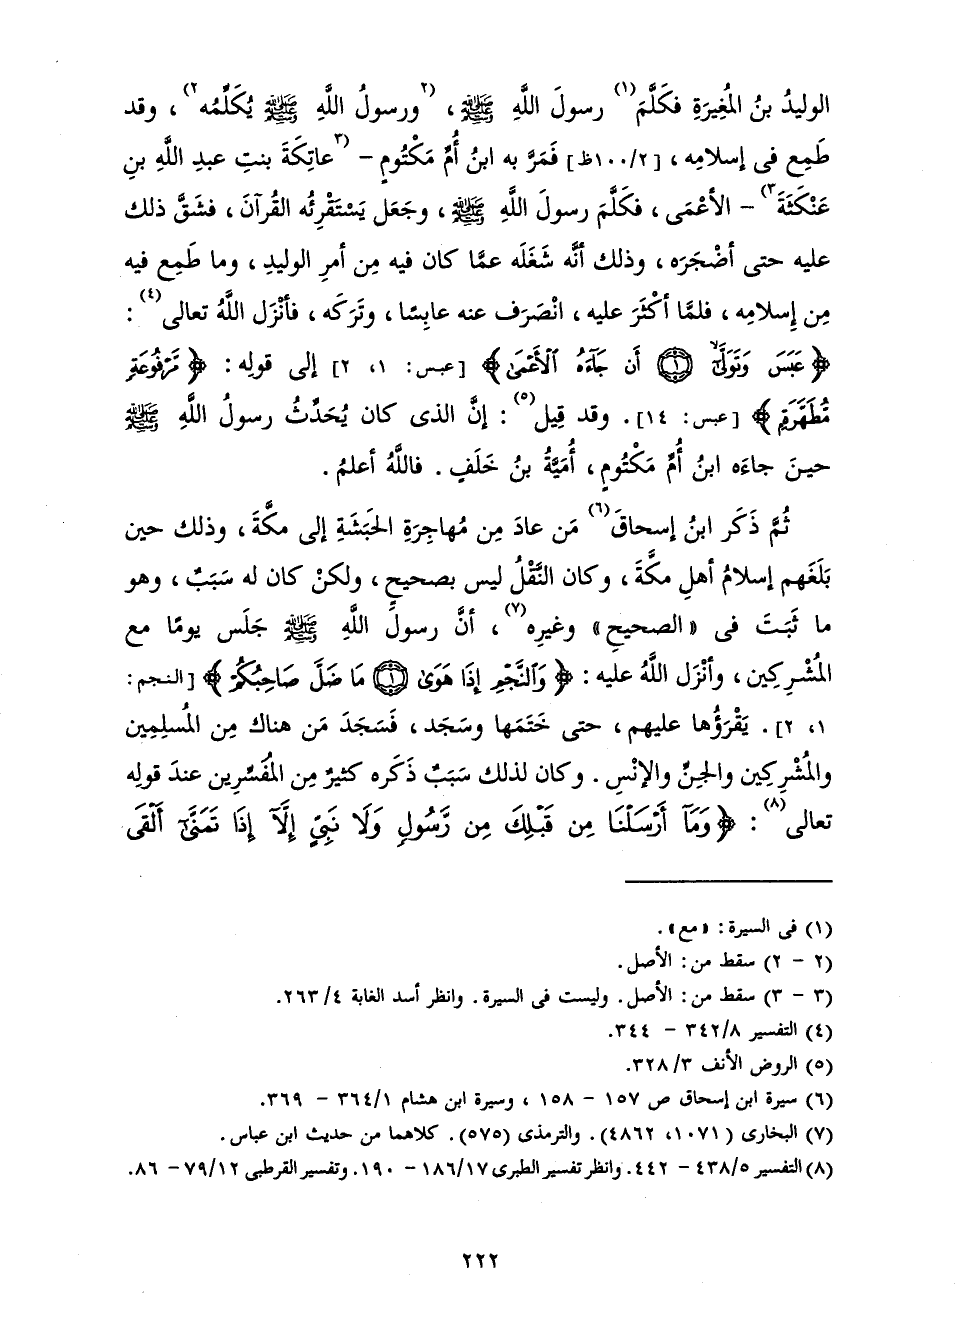 الوليدُ بنُ المُغِيرَةِ فكَلَّمَ(١) رسولَ اللَّهِ ﷺ ، (٢ورسولُ اللَّهِ ﷺ يُكَلِّمُه٢) ، وقد
طَمِع فى إسلامِه ، [٢/١٠٠ظ] فَمَرَّ به ابنُ أُمِّ مَكْتُومٍ - (٣عاتِكَةَ بنتِ عبدِ اللَّهِ بنِ
عَنْكَثَةَ٣) - الأعْمَى ، فكَلَّمَ رسولَ اللَّهِ ﷺ ، وجَعَل يَسْتَقْرِئُه القُرآنَ ، فشَقَّ ذلك
عليه حتى أضْجَرَه ، وذلك أنَّه شَغَلَه عمَّا كان فيه مِن أمرِ الوليدِ ، وما طَمِع فيه
مِن إسلامِه ، فلمَّا أكْثَرَ عليه ، انْصَرَف عنه عابِسًا ، وتَرَكَه ، فأنْزَل اللَّهُ تعالى(٤) :
﴿ عَبَسَ وَتَوَلَّىٰٓ ۝١ أَن جَآءَهُ ٱلْأَعْمَىٰ ﴾ [ عبس : ١، ٢ ] إلى قولِه : ﴿ مَّرْفُوعَةٍ
مُّطَهَّرَةٍ ﴾ [ عبس : ١٤ ] . وقد قِيل(٥) : إنَّ الذى كان يُحَدِّثُ رسولُ اللَّهِ ﷺ
حينَ جاءَه ابنُ أُمِّ مَكْتُومٍ ، أُمَيَّةُ بنُ خَلَفٍ . فاللَّهُ أعلمُ .
ثُمَّ ذَكَر ابنُ إسحاقَ(٦) مَن عادَ مِن مُهاجِرَةِ الحَبَشَةِ إلى مكَّةَ ، وذلك حين
بَلَغَهم إسلامُ أهلِ مكَّةَ ، وكان النَّقْلُ ليس بصحيحٍ ، ولكنْ كان له سَبَبٌ ، وهو
ما ثَبَتَ فى « الصحيحِ » وغيرِه(٧) ، أنَّ رسولَ اللَّهِ ﷺ جَلَس يومًا مع
المُشْرِكِين ، وأنْزَل اللَّهُ عليه : ﴿ وَٱلنَّجْمِ إِذَا هَوَىٰ ۝١ مَا ضَلَّ صَاحِبُكُمْ ﴾ [ النجم :
١، ٢ ] . يَقْرَؤُها عليهم ، حتى خَتَمَها وسَجَد ، فَسَجَدَ مَن هناك مِن المُسلِمِين
والمُشْرِكِين والجِنِّ والإنْسِ . وكان لذلك سَبَبٌ ذَكَره كثيرٌ مِن المُفَسِّرِين عندَ قولِه
تعالى(٨) : ﴿ وَمَآ أَرْسَلْنَا مِن قَبْلِكَ مِن رَّسُولٍ وَلَا نَبِىٍّ إِلَّآ إِذَا تَمَنَّىٰٓ أَلْقَى
(١) فى السيرة : « مع » .
(٢ - ٢) سقط من : الأصل .
(٣ - ٣) سقط من : الأصل . وليست فى السيرة . وانظر أسد الغابة ٤/ ٢٦٣.
(٤) التفسير ٨/ ٣٤٢ - ٣٤٤ .
(٥) الروض الأنف ٣/ ٣٢٨.
(٦) سيرة ابن إسحاق ص ١٥٧ - ١٥٨ ، وسيرة ابن هشام ١/ ٣٦٤ - ٣٦٩ .
(٧) البخارى ( ١٠٧١، ٤٨٦٢) . والترمذى (٥٧٥) . كلاهما من حديث ابن عباس .
(٨) التفسير ٥/ ٤٣٨ - ٤٤٢ . وانظر تفسير الطبرى ١٧/ ١٨٦ - ١٩٠ . وتفسير القرطبى ١٢/ ٧٩ - ٨٦ .
٢٢٢